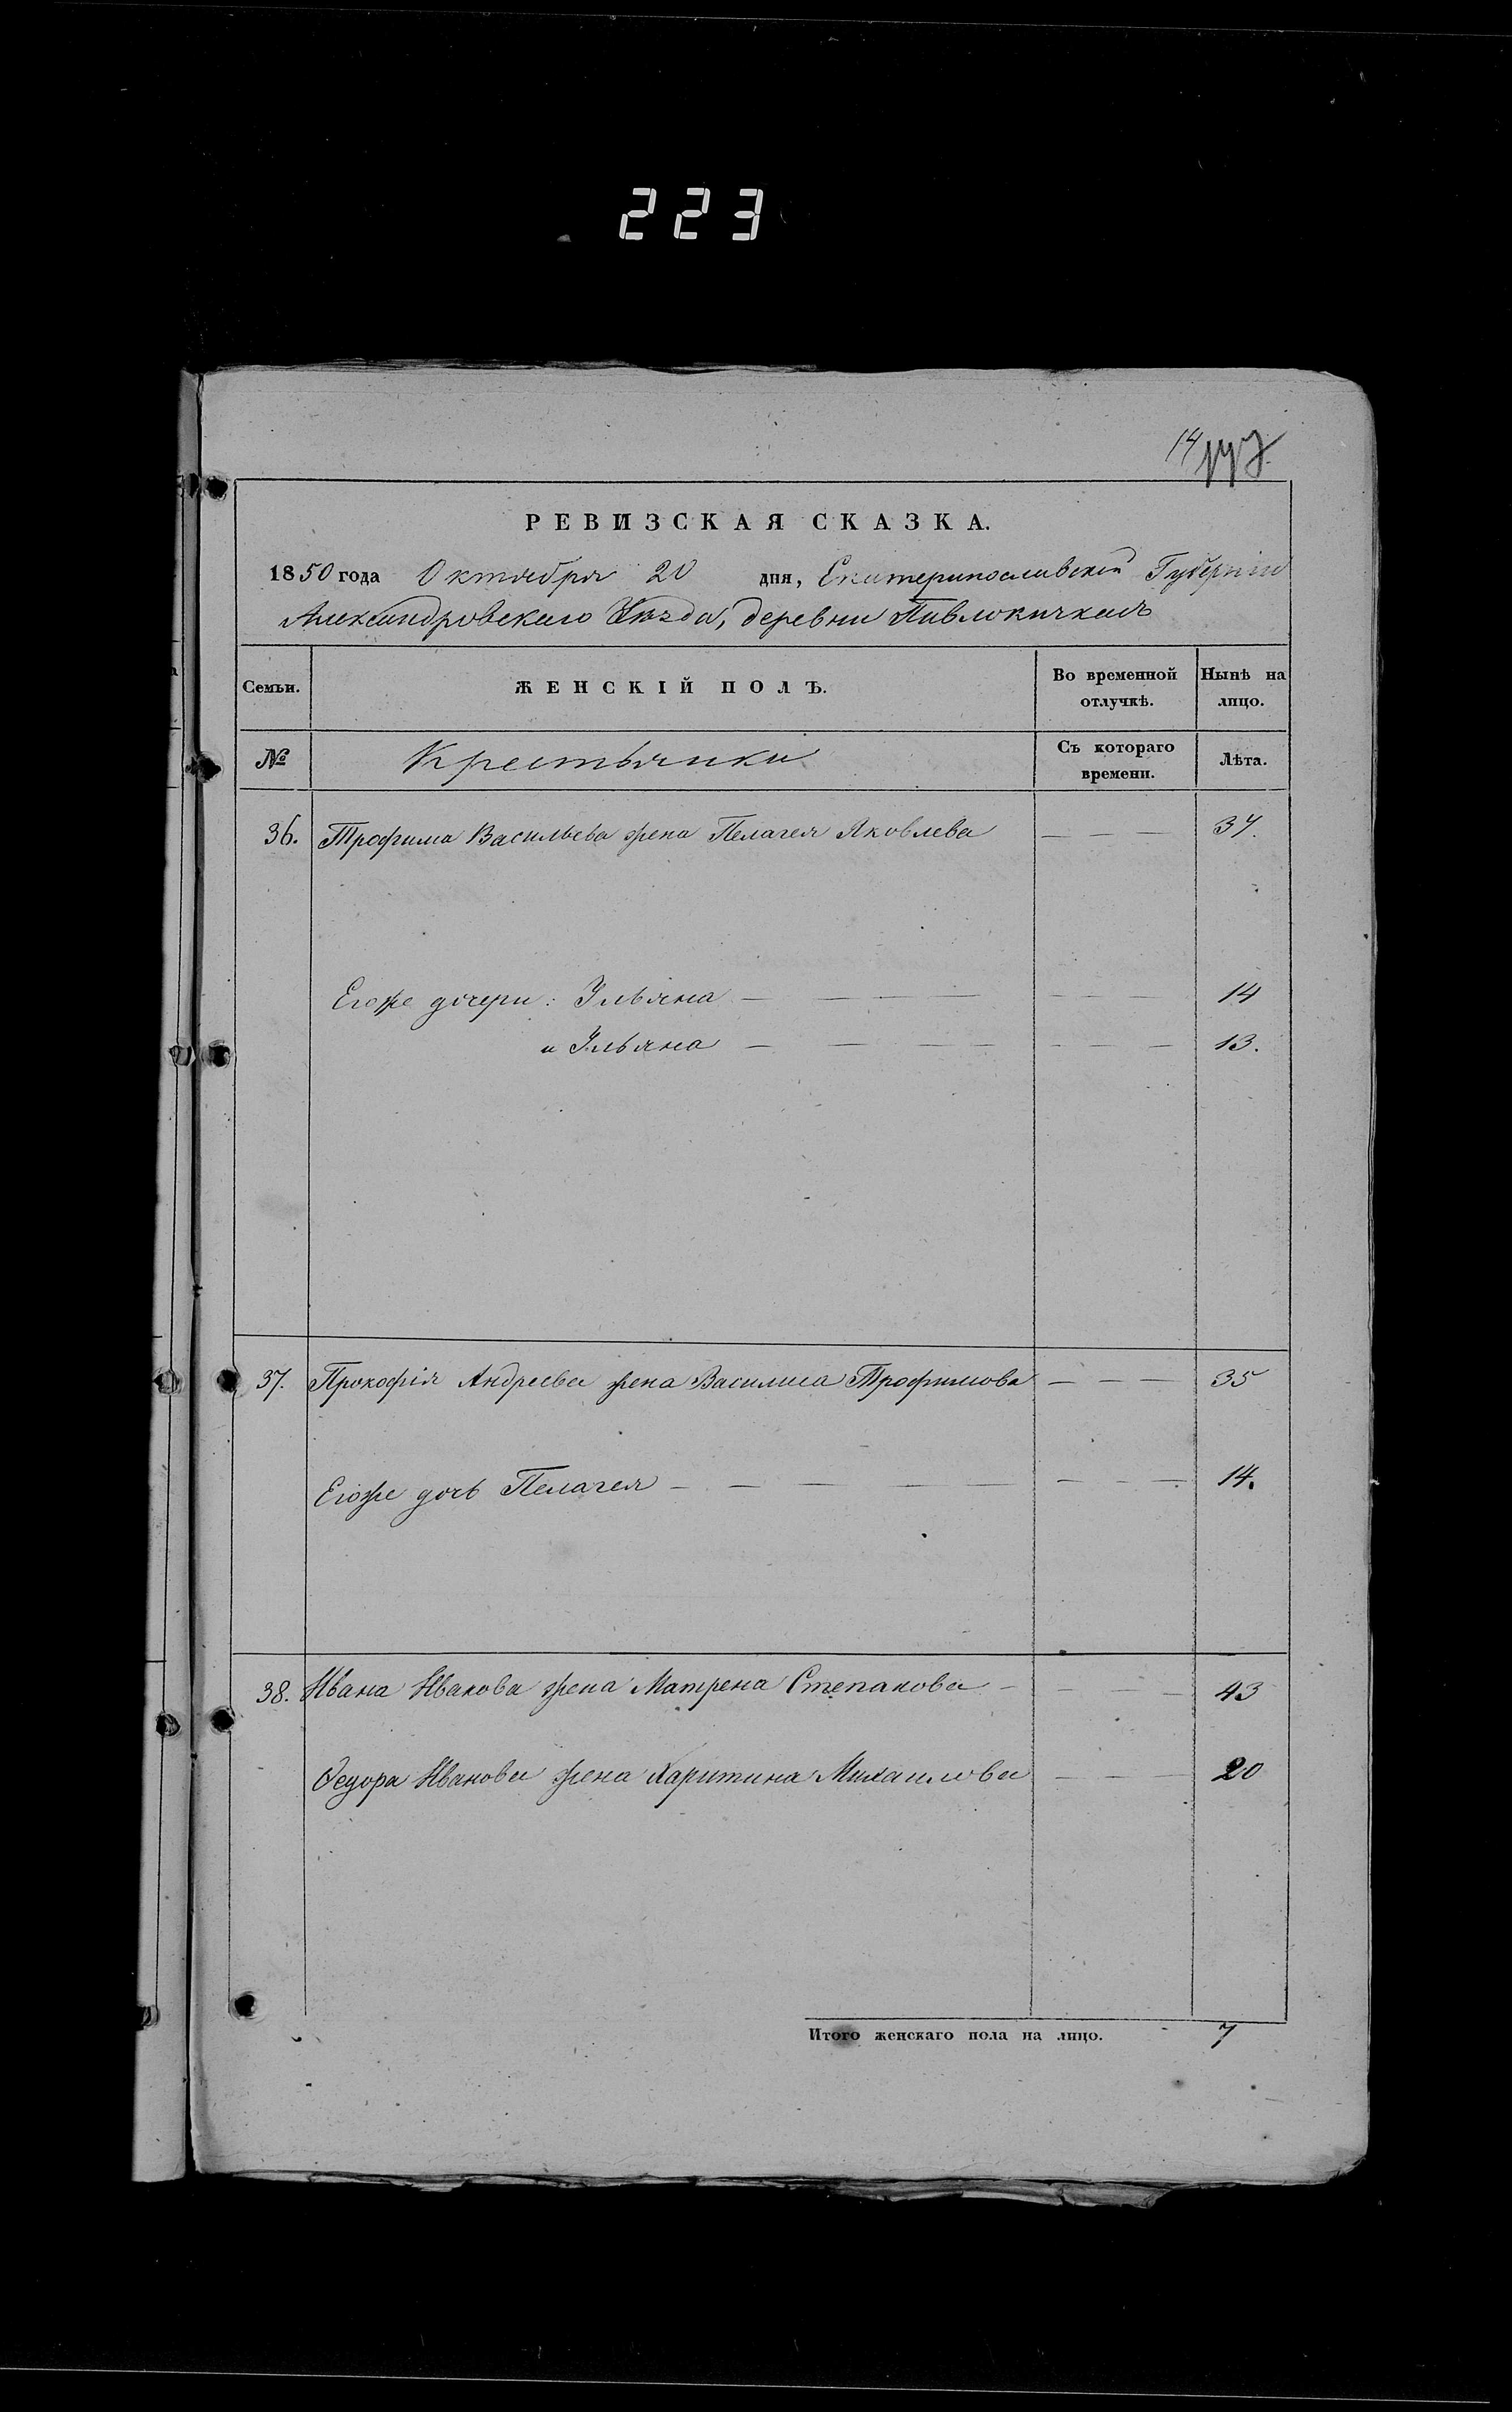 223
14
РЕВИЗСКАЯ СКАЗКА.
1850 года Октября 20 дня, Екатеринославской Губерніи
Александровскаго Уѣзда, деревни Павлокичкасъ
Семьи. ЖЕНСКІЙ ПОЛЪ. Во временной отлучкѣ. Нынѣ на лицо.
№ Крестьянки Съ котораго времени. Лѣта.
36. Трофима Васильева жена Пелагея Яковлева — — — 37.
Егоже дочери: Ульяна — — — — — — 14
и Ульяна — — — — — — — 13.
37. Прокофія Андреева жена Василиса Трофимова — — — 35
Егоже дочь Пелагея — — — — — — — 14.
38. Ивана Иванова жена Матрена Степанова — — — — 43
Ѳедора Иванова жена Харитина Михаилова — — — 20
Итого женскаго пола на лицо. 7